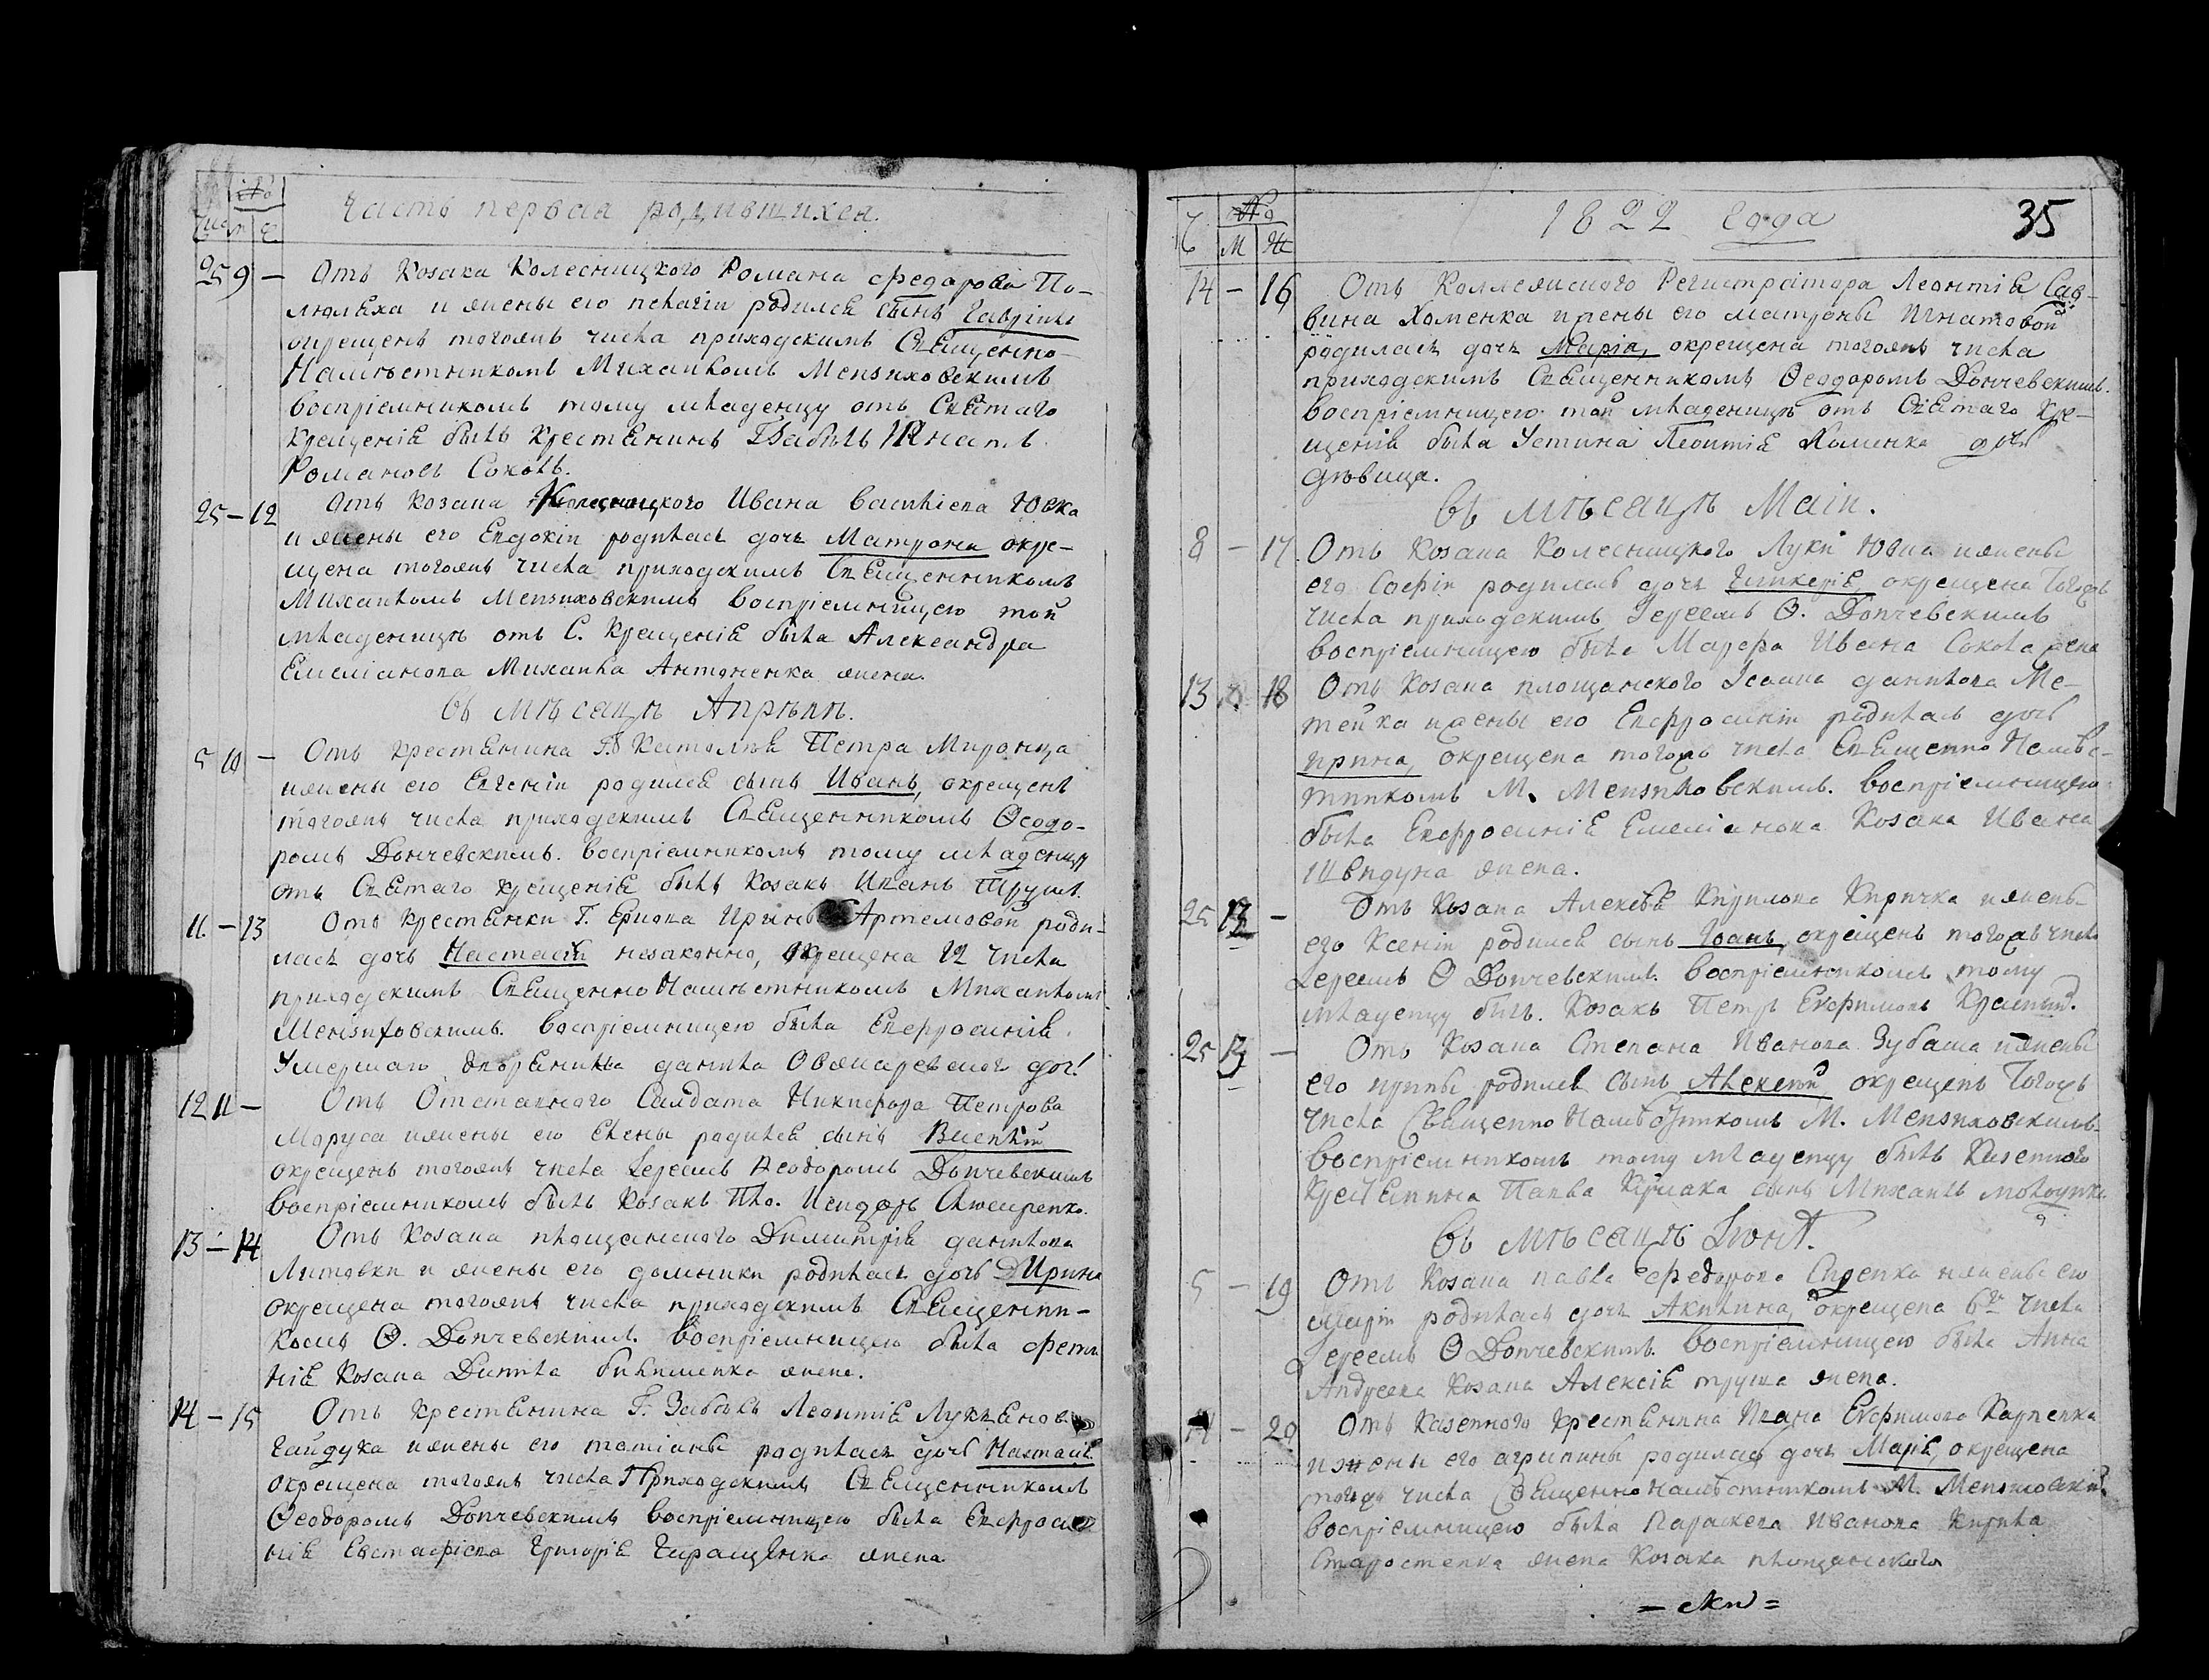 Часть первая родившихся.
25 9 — Отъ Козака Колесницкого Романа Федорова По-
люляха и жены его Пелагіи родился сынъ Гавріилъ
окрещенъ тогожъ числа приходскимъ Священно-
Намѣстникомъ Михаиломъ Мензиховскимъ
воспріемникомъ тому младенцу отъ Святаго
крещенія былъ крестянинъ Игнатъ
Романовъ Соколъ.
25 — 12 Отъ Козака Колесницкого Ивана Василіева Ювка
и жены его Евдокіи родилась дочь Матрона окре-
щена тогожъ числа приходскимъ Священникомъ
Михаиломъ Мензиховскимъ воспріемницею той
младеницѣ отъ С. крещенія была Александра
Емеліанова Михаила Антоненка жена.
въ мѣсацѣ Апрѣлѣ.
5 10 — Отъ крестянина Г. Петра Миронца
и жены его Евгеніи родился сынъ Иванъ, окрещенъ
тогожъ числа приходскимъ Священникомъ Ѳеодо-
ромъ Дончевскимъ. воспріемникомъ тому младенцу
отъ Святаго крещенія былъ Козакъ Иванъ Трушъ.
11. — 13 Отъ крестянки Г. Ирины Артемовой роди-
лась дочь Настасія незаконно, окрещена 12 числа
приходскимъ СвященноНамѣстникомъ Михаиломъ
Мензиховскимъ. воспріемницею была Евфросинія
Умершаго дворянина Данила дочь
12 11 — Отъ Отставного Салдата Никифора Петрова
Маруса и жены его Елены родился сынъ Василій
окрещенъ тогожъ числа Іереемъ Ѳеодоромъ Дончевскимъ
воспріемникомъ былъ Козакъ Пло. Исидоръ
13 — 14 Отъ Козака площанского Димитрія Данилова
Литовки и жены его Домники родилась дочь Ирина
окрещена тогожъ числа приходскимъ Священни-
комъ Ѳ. Дончевскимъ. воспріемницею была Фети-
нія Козака Данила жена.
14 — 15 Отъ крестянина Г. Леонтія Лукянова
Гайдука и жены его Татіаны родилась дочь Настасія
окрещена тогожъ числа Приходскимъ Священникомъ
Ѳеодоромъ Дончевскимъ воспріемницею была Евфроси
нія Евстафіева Григорія жена
№
Ч М Ж
1822 года 35
14 — 16 Отъ Коллежского Регистратора Леонтія Сав-
вина Хоменка и жены его Матроны Игнатовой
родилась дочь Марія, окрещена тогожъ числа
приходскимъ Священникомъ Ѳеодоромъ Дончевскимъ.
воспріемницею той младеницѣ отъ Святаго кре-
щенія была Устина Леонтія Хоменка дочь
дѣвица.
въ мѣсацѣ Маіи.
8 — 17. Отъ Козака Колесницкого Луки Ювка и жены
его Софіи родилась дочь Гликерія окрещена тогожъ
числа приходскимъ Іереемъ Ѳ. Дончевскимъ
воспріемницею была Марфа Ивана Сокола жена
13 18 Отъ Козака площанского Іоанна Данилова Ме-
тейка и жены его Евфросиніи родилась дочь
Ирина, окрещена тогожъ числа Священно Намѣс-
тникомъ М. Мензиховскимъ. воспріемницею
была Евфросинія Емеліанова Козака Ивана
Швидуна жена.
25 12 — Отъ Козака Алексѣя Кирилова Киричка и жены
его Ксеніи родился сынъ Іоанъ, окрещенъ тогожъ числа
Іереемъ Ѳ Дончевскимъ. воспріемникомъ тому
младенцу былъ. Козакъ Петръ Евфимовъ
25 13 — Отъ Козака Степана Иванова Зубаша и жены
его Ирины родился сынъ Алексѣй окрещенъ тогожъ
числа Священно Намѣстникомъ М. Мензиховскимъ
воспріемникомъ тому младенцу былъ Казенного
Крестянина Павла сынъ Михаилъ
въ мѣсацѣ Іюнѣ.
5 — 19 Отъ Козака Павла Федорова и жены его
Маріи родилась дочь Акилина, окрещена 6го числа
Іереемъ Ѳ Дончевскимъ. воспріемницею была Анна
Андреева Козака Алексія Труша жена.
— 20 Отъ казенного крестянина Ивана Евфимова Карпенка
и жены его Агрипины родилась дочь Марія, окрещена
тогожъ числа Священно Намѣстникомъ М. Мензиховскимъ
воспріемницею была Параскева Иванова Кирила
Старостенка жена Козака площанского